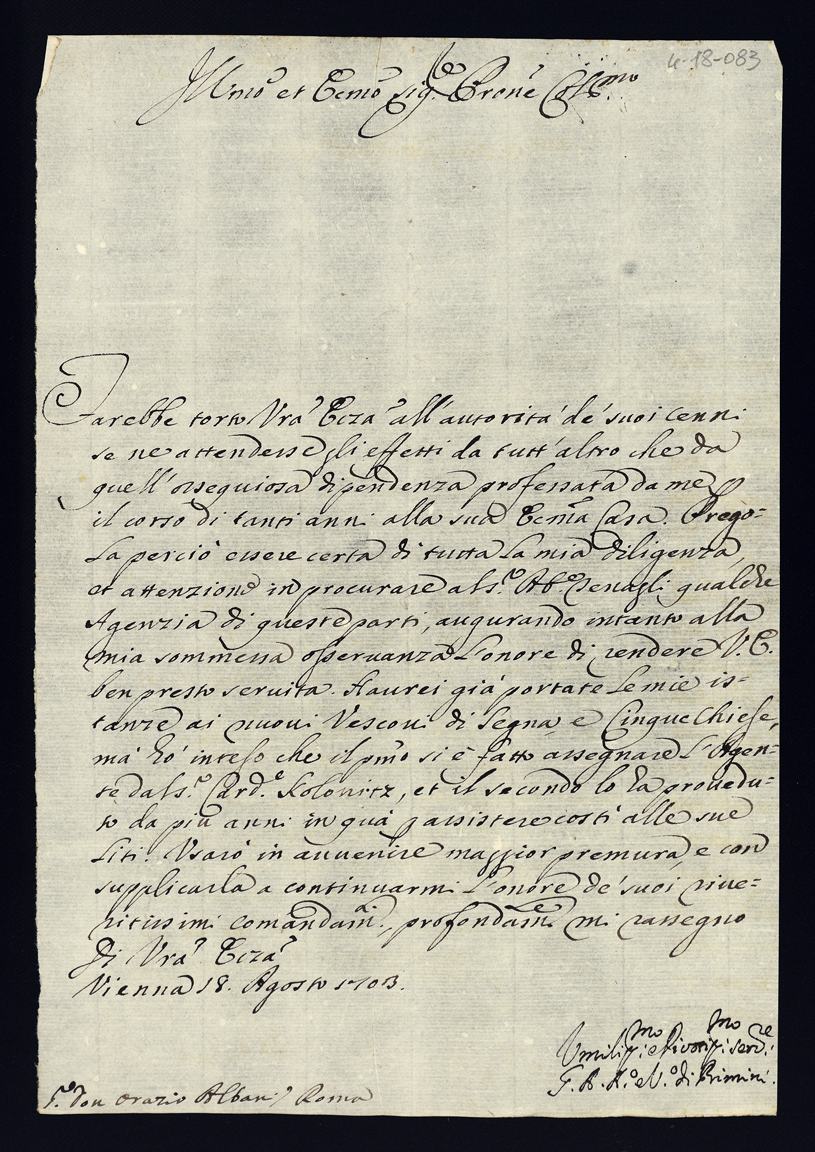 4-18-083
Illmo et Ecmo Sig.re Prone Col.mo
Farebbe torto Vra Ecza all'autorità de' suoi Cenni
se ne attendesse gli effetti da tutt'altro che da
quell'ossequiosa dipendenza professata da me p
il corso di tanti anni alla sua Ecma Casa. Prego-
la perciò essere certa di tutta la mia diligenza,
et attenzione in procurare al s.r Ab.e qualche
Agenzia di queste parti, augurando intanto alla
mia sommessa osservanza l'onore di rendere V.E.
ben presto servita. Haurei già portate le mie is-
tanze ai nuovi Vescovi di Segna, e Cinque Chiese,
mà hò inteso che il pmo si è fatto assegnare l'Agen-
te dal s.r Card.e Kolonitz, et il secondo lo ha provedu-
to da più anni in quà p assistere costì alle sue
Liti. Userò in avvenire maggior premura, e con
supplicarla a continuarmi l'onore de' suoi rive-
ritissimi comandam.ti, profondam.te mi rassegno
Di Vra Ecza
Vienna 18. Agosto 1703.
Umiliss.mo e Divotiss.mo serv.re
G. A. A.o e V.o di Rimini.
S.r Don Orazio Albani / Roma